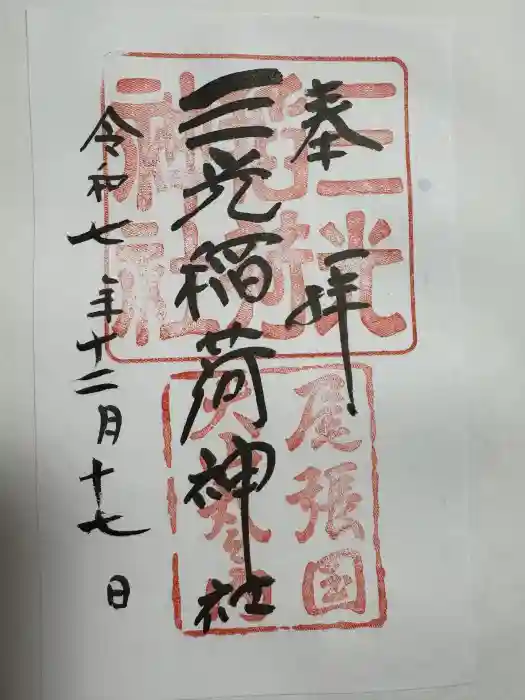 奉拝
三光稲荷神社
令和七年十二月十七日
三光
稲荷
神社
尾張国
犬山